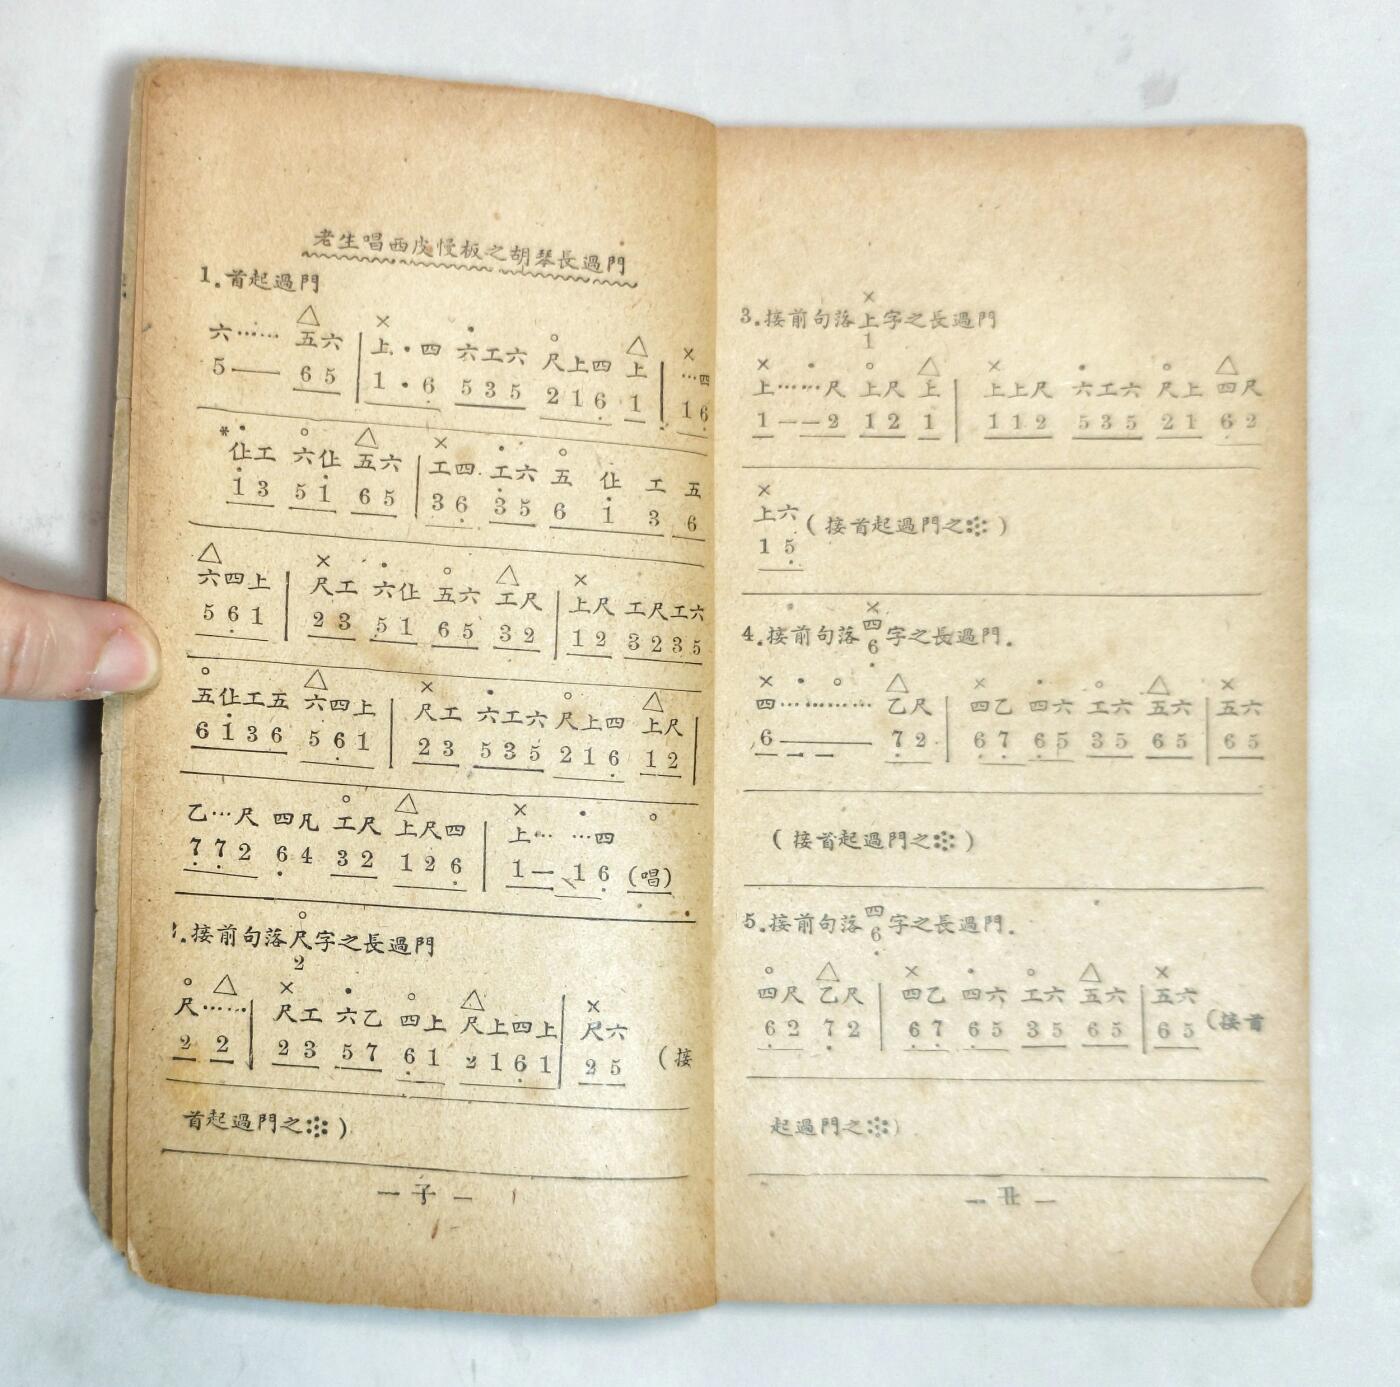 老生唱西皮慢板之胡琴長過門
1.首起過門
六…… 五六 | 上·四 六工六 尺上四 上 | …四
5—— 65 | 1·6 535 216 1 | 16
* 仩工 六仩 五六 | 工四 工六 五 仩 工 五
13 51 65 | 36 35 6 1 3 6
六四上 | 尺工 六仩 五六 工尺 | 上尺 工尺工六
561 | 23 51 65 32 | 12 3235
五仩工五 六四上 | 尺工 六工六 尺上四 上尺 |
6136 561 | 23 535 216 12 |
乙…尺 四凡 工尺 上尺四 | 上… …四
772 64 32 126 | 1— 16 (唱)
接前句落尺字之長過門
2
尺…… | 尺工 六乙 四上 尺上四上 | 尺六
2 2 | 23 57 61 2161 | 25 (接
首起過門之※)
一子一
3.接前句落上字之長過門
1
上……尺 上尺 上 | 上上尺 六工六 尺上 四尺
1——2 12 1 | 112 535 21 62
上六 (接首起過門之※)
15
4.接前句落四字之長過門.
6
四………… 乙尺 | 四乙 四六 工六 五六 | 五六
6—— 72 | 67 65 35 65 | 65
(接首起過門之※)
5.接前句落四字之長過門.
6
四尺 乙尺 | 四乙 四六 工六 五六 | 五六
62 72 | 67 65 35 65 | 65 (接首
起過門之※)
一丑一